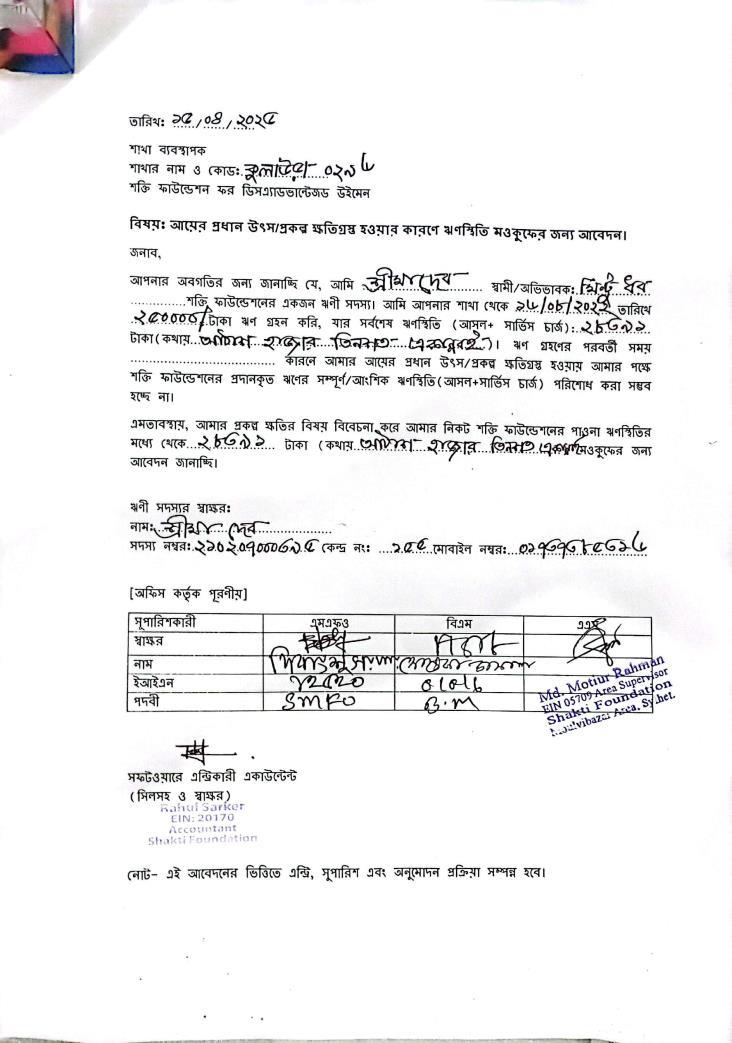 তারিখ: ১৫/০৪/২০২৫
শাখা ব্যবস্থাপক
শাখার নাম ও কোড: কুলাউড়া ০২৯৮
শক্তি ফাউন্ডেশন ফর ডিসএ্যাডভান্টেজড উইমেন
বিষয়: আয়ের প্রধান উৎস/প্রকল্প ক্ষতিগ্রস্ত হওয়ার কারণে ঋণস্থিতি মওকুফের জন্য আবেদন।
জনাব,
আপনার অবগতির জন্য জানাচ্ছি যে, আমি দেব স্বামী/অভিভাবক: মিন্টু ধর
শক্তি ফাউন্ডেশনের একজন ঋণী সদস্য। আমি আপনার শাখা থেকে তারিখে
টাকা ঋণ গ্রহন করি, যার সর্বশেষ ঋণস্থিতি (আসল+ সার্ভিস চার্জ): ২৮৩৯১
টাকা (কথায় আটাশ হাজার তিনশত একানব্বই)। ঋণ গ্রহণের পরবর্তী সময়
কারনে আমার আয়ের প্রধান উৎস/প্রকল্প ক্ষতিগ্রস্ত হওয়ায় আমার পক্ষে
শক্তি ফাউন্ডেশনের প্রদানকৃত ঋণের সম্পূর্ণ/আংশিক ঋণস্থিতি (আসল+সার্ভিস চার্জ) পরিশোধ করা সম্ভব
হচ্ছে না।
এমতাবস্থায়, আমার প্রকল্প ক্ষতির বিষয় বিবেচনা করে আমার নিকট শক্তি ফাউন্ডেশনের পাওনা ঋণস্থিতির
মধ্যে থেকে ২৮৩৯১ টাকা (কথায় আটাশ হাজার তিনশত মওকুফের জন্য
আবেদন জানাচ্ছি।
ঋণী সদস্যর স্বাক্ষর:
নাম: দেব
সদস্য নম্বর: কেন্দ্র নং: মোবাইল নম্বর:
[অফিস কর্তৃক পূরণীয়]
সুপারিশকারী এমএফও বিএম এএস
স্বাক্ষর
নাম
ইআইএন
পদবী SMFO B.M
Md. Motiur Rahman
EIN 05709 Area Supervisor
Shakti Foundation
Moulvibazar Area, Sylhet.
সফটওয়ারে এন্ট্রিকারী একাউন্টেন্ট
(সিলসহ ও স্বাক্ষর)
Rahul Sarker
EIN: 20170
Accountant
Shakti Foundation
নোট- এই আবেদনের ভিত্তিতে এন্ট্রি, সুপারিশ এবং অনুমোদন প্রক্রিয়া সম্পন্ন হবে।